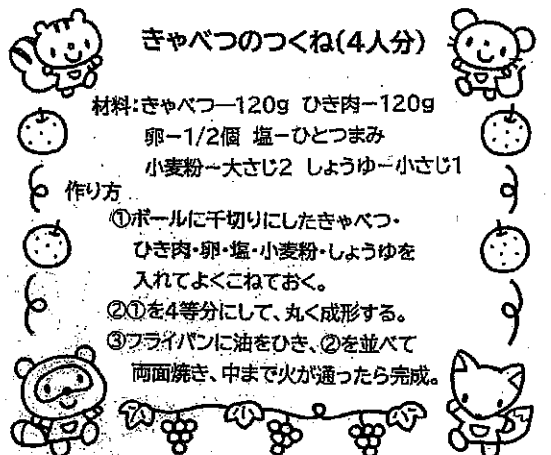 きゃべつのつくね(4人分)
材料:きゃべつー120g ひき肉ー120g
卵ー1/2個 塩ーひとつまみ
小麦粉ー大さじ2 しょうゆー小さじ1
作り方
①ボールに千切りにしたきゃべつ・
ひき肉・卵・塩・小麦粉・しょうゆを
入れてよくこねておく。
②①を4等分にして、丸く成形する。
③フライパンに油をひき、②を並べて
両面焼き、中まで火が通ったら完成。